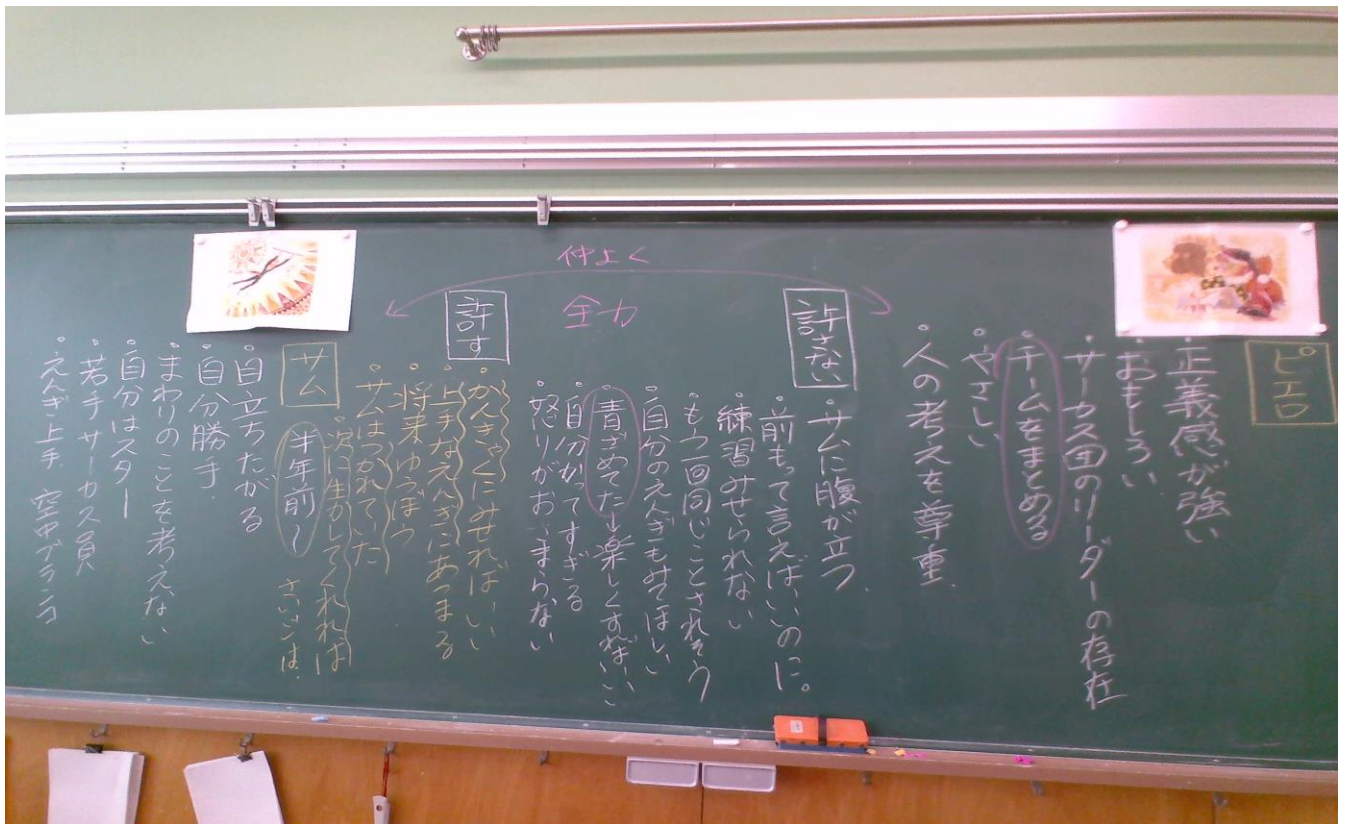 ピエロ
・正義感が強い
・おもしろい
・サーカス団のリーダーの存在
・チームをまとめる
・やさしい
・人の考えを尊重
仲よく
全力
許さない
・サムに腹が立つ
・前もって言えばいいのに。
・練習みせられない
・もう一回同じことされそう
・自分のえんぎもみてほしい
・青ざめてた→楽しくすればいい
・自分かってすぎる
・怒りがおさまらない
許す
・かんきゃくにみせればいい
・上手なえんぎにあつまる
・将来ゆうぼう
・サムはつかれていた
・次に生かしてくれれば
サム
半年前～
さいごは、
・目立ちたがる
・自分勝手
・まわりのことを考えない
・自分はスター
・若手サーカス員
・えんぎ上手 空中ブランコ